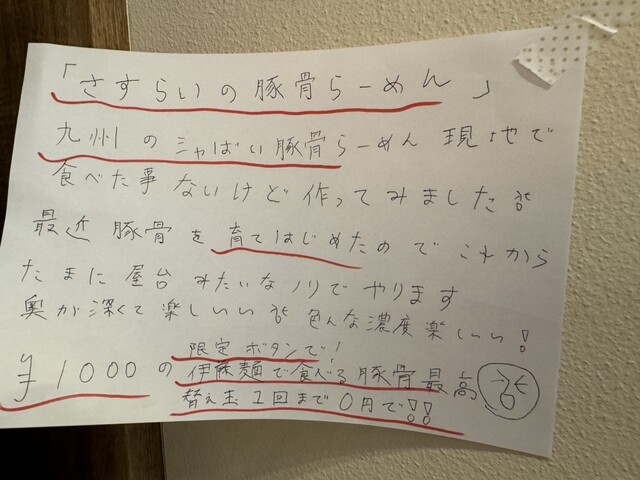 「さすらいの豚骨らーめん」
九州のシャばい豚骨らーめん現地で
食べた事ないけど作ってみました
最近豚骨を育てはじめたのでこれから
たまに屋台みたいなノリでやります
奥が深くて楽しいい 色んな濃度楽しい!
¥1000の限定ボタンで!
伊藤麺で食べる豚骨最高
替え玉1回まで0円で!!